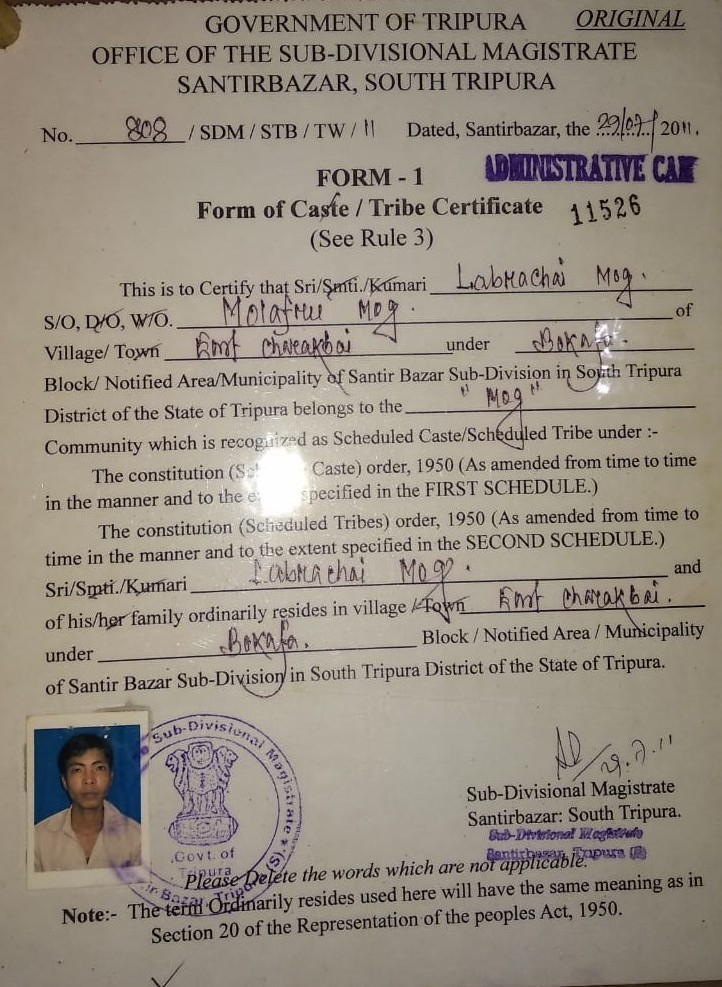 GOVERNMENT OF TRIPURA ORIGINAL
OFFICE OF THE SUB-DIVISIONAL MAGISTRATE
SANTIRBAZAR, SOUTH TRIPURA
No. 808 / SDM / STB / TW / 11 Dated, Santirbazar, the 29/07/2011.
ADMINISTRATIVE
FORM - 1
Form of Caste / Tribe Certificate 11526
(See Rule 3)
This is to Certify that Sri/Smti./Kumari Labrachai Mog.
S/O, D/O, W/O. Molafru Mog. of
Village/ Town East Charakbai under Bokafa.
Block/ Notified Area/Municipality of Santir Bazar Sub-Division in South Tripura
District of the State of Tripura belongs to the "Mog"
Community which is recognized as Scheduled Caste/Scheduled Tribe under :-
The constitution Caste) order, 1950 (As amended from time to time
in the manner and to the specified in the FIRST SCHEDULE.)
The constitution (Scheduled Tribes) order, 1950 (As amended from time to
time in the manner and to the extent specified in the SECOND SCHEDULE.)
Sri/Smti./Kumari Labrachai Mog. and
of his/her family ordinarily resides in village / Town East Charakbai.
under Bokafa. Block / Notified Area / Municipality
of Santir Bazar Sub-Division in South Tripura District of the State of Tripura.
29.7.11
Sub-Divisional Magistrate
Santirbazar: South Tripura.
Sub-Divisional Magistrate
Santirbazar, Tripura (S)
Sub-Divisional Magistrate
Govt. of
Tripura
Please Delete the words which are not applicable.
Note:- The term Ordinarily resides used here will have the same meaning as in
Section 20 of the Representation of the peoples Act, 1950.